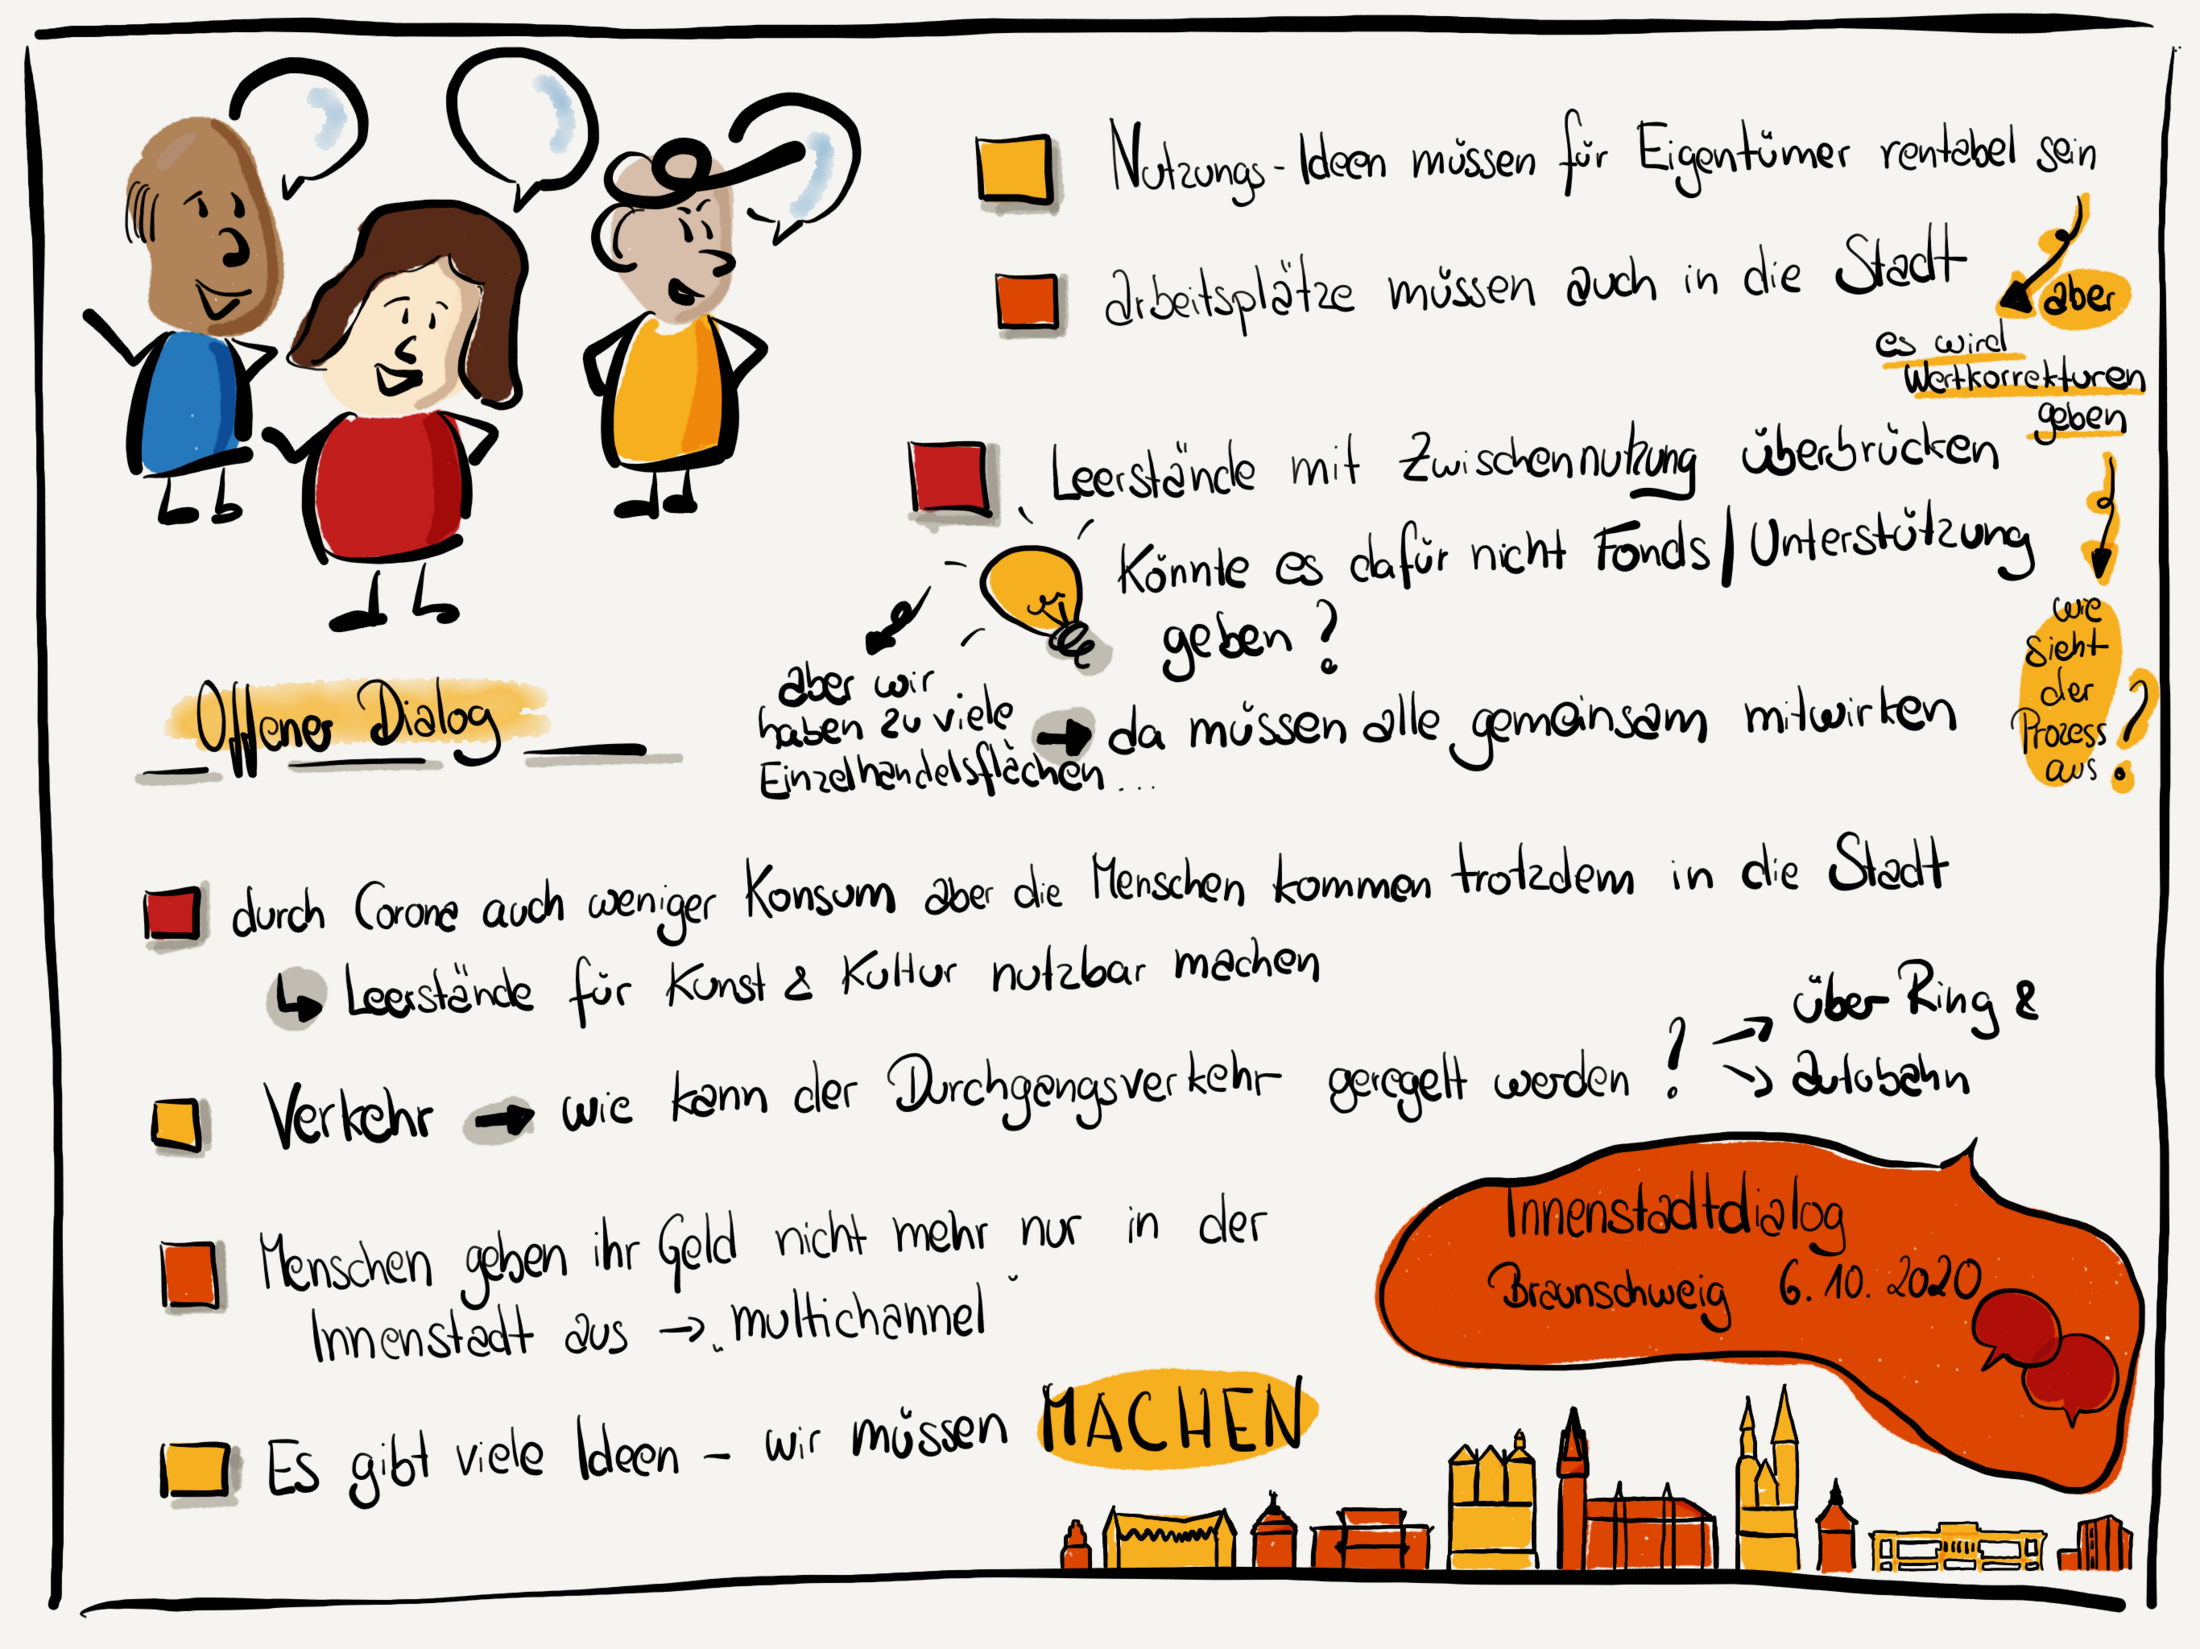 Nutzungs-Ideen müssen für Eigentümer rentabel sein
aber
es wird
Wertkorrekturen
geben
wie
sieht
der
Prozess
aus ?
arbeitsplätze müssen auch in die Stadt
Leerstände mit Zwischennutzung überbrücken
Könnte es dafür nicht Fonds/Unterstützung
geben ?
aber wir
haben zu viele
Einzelhandelsflächen ...
→ da müssen alle gemeinsam mitwirken
Offener Dialog
durch Corona auch weniger Konsum aber die Menschen kommen trotzdem in die Stadt
↳ Leerstände für Kunst & Kultur nutzbar machen
Verkehr → wie kann der Durchgangsverkehr geregelt werden ?
→ über Ring &
→ autobahn
Menschen geben ihr Geld nicht mehr nur in der
Innenstadt aus → „multichannel"
Es gibt viele Ideen - wir müssen MACHEN
Innenstadtdialog
Braunschweig 6.10.2020